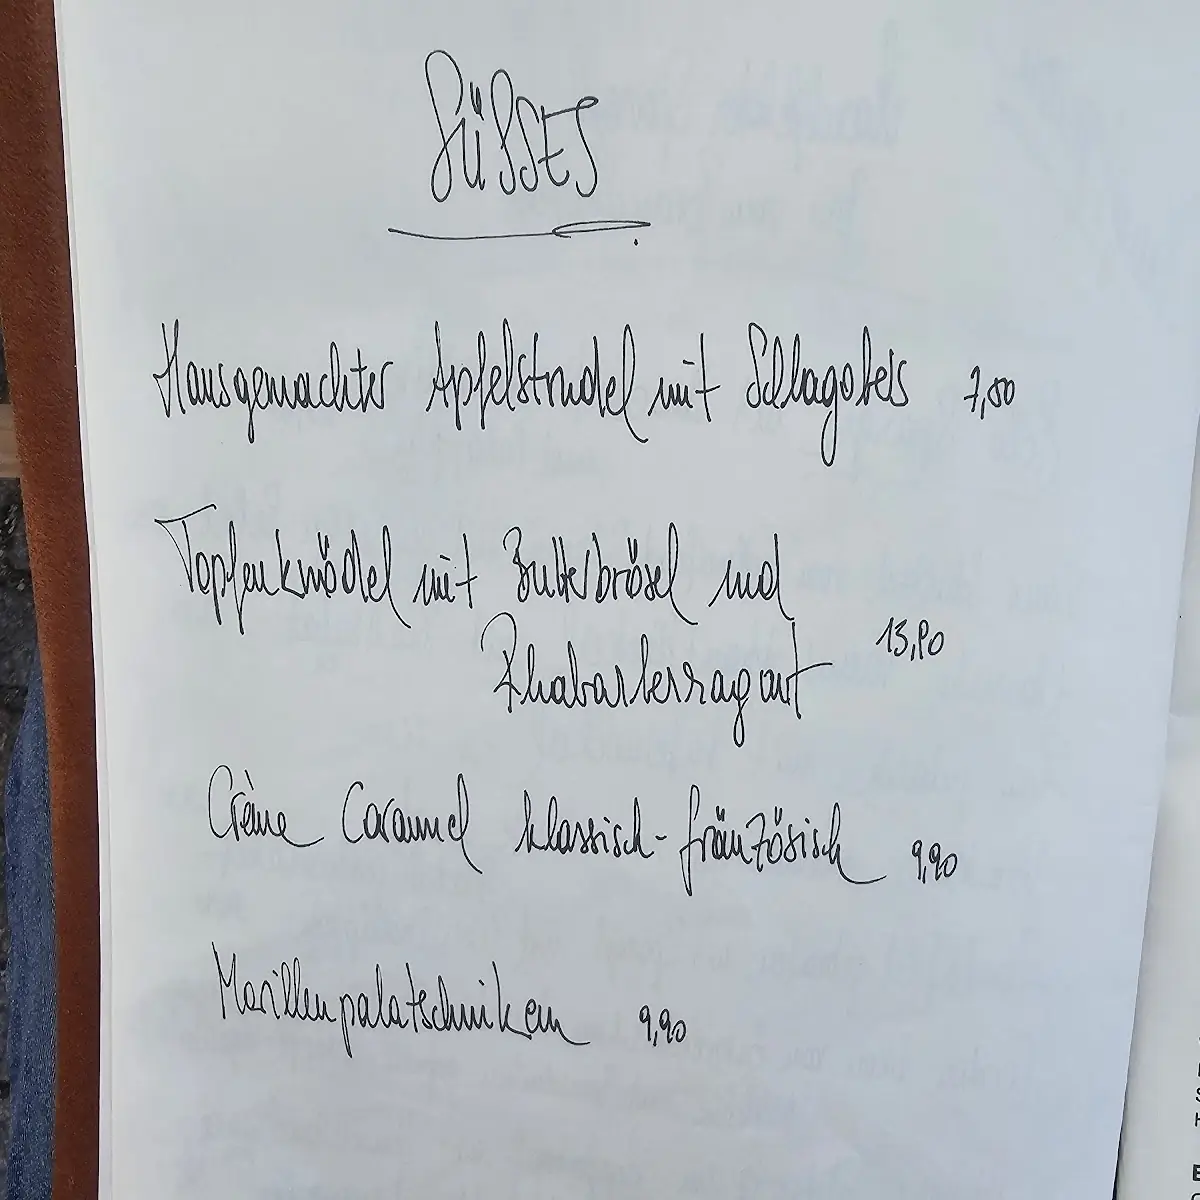 SÜSSES
Hausgemachter Apfelstrudel mit Schlagobers 7,50
Topfenknödel mit Butterbrösel und
Rhabarberragout 13,90
Crème Caramel klassisch-französisch 9,90
Marillenpalatschinken 9,90